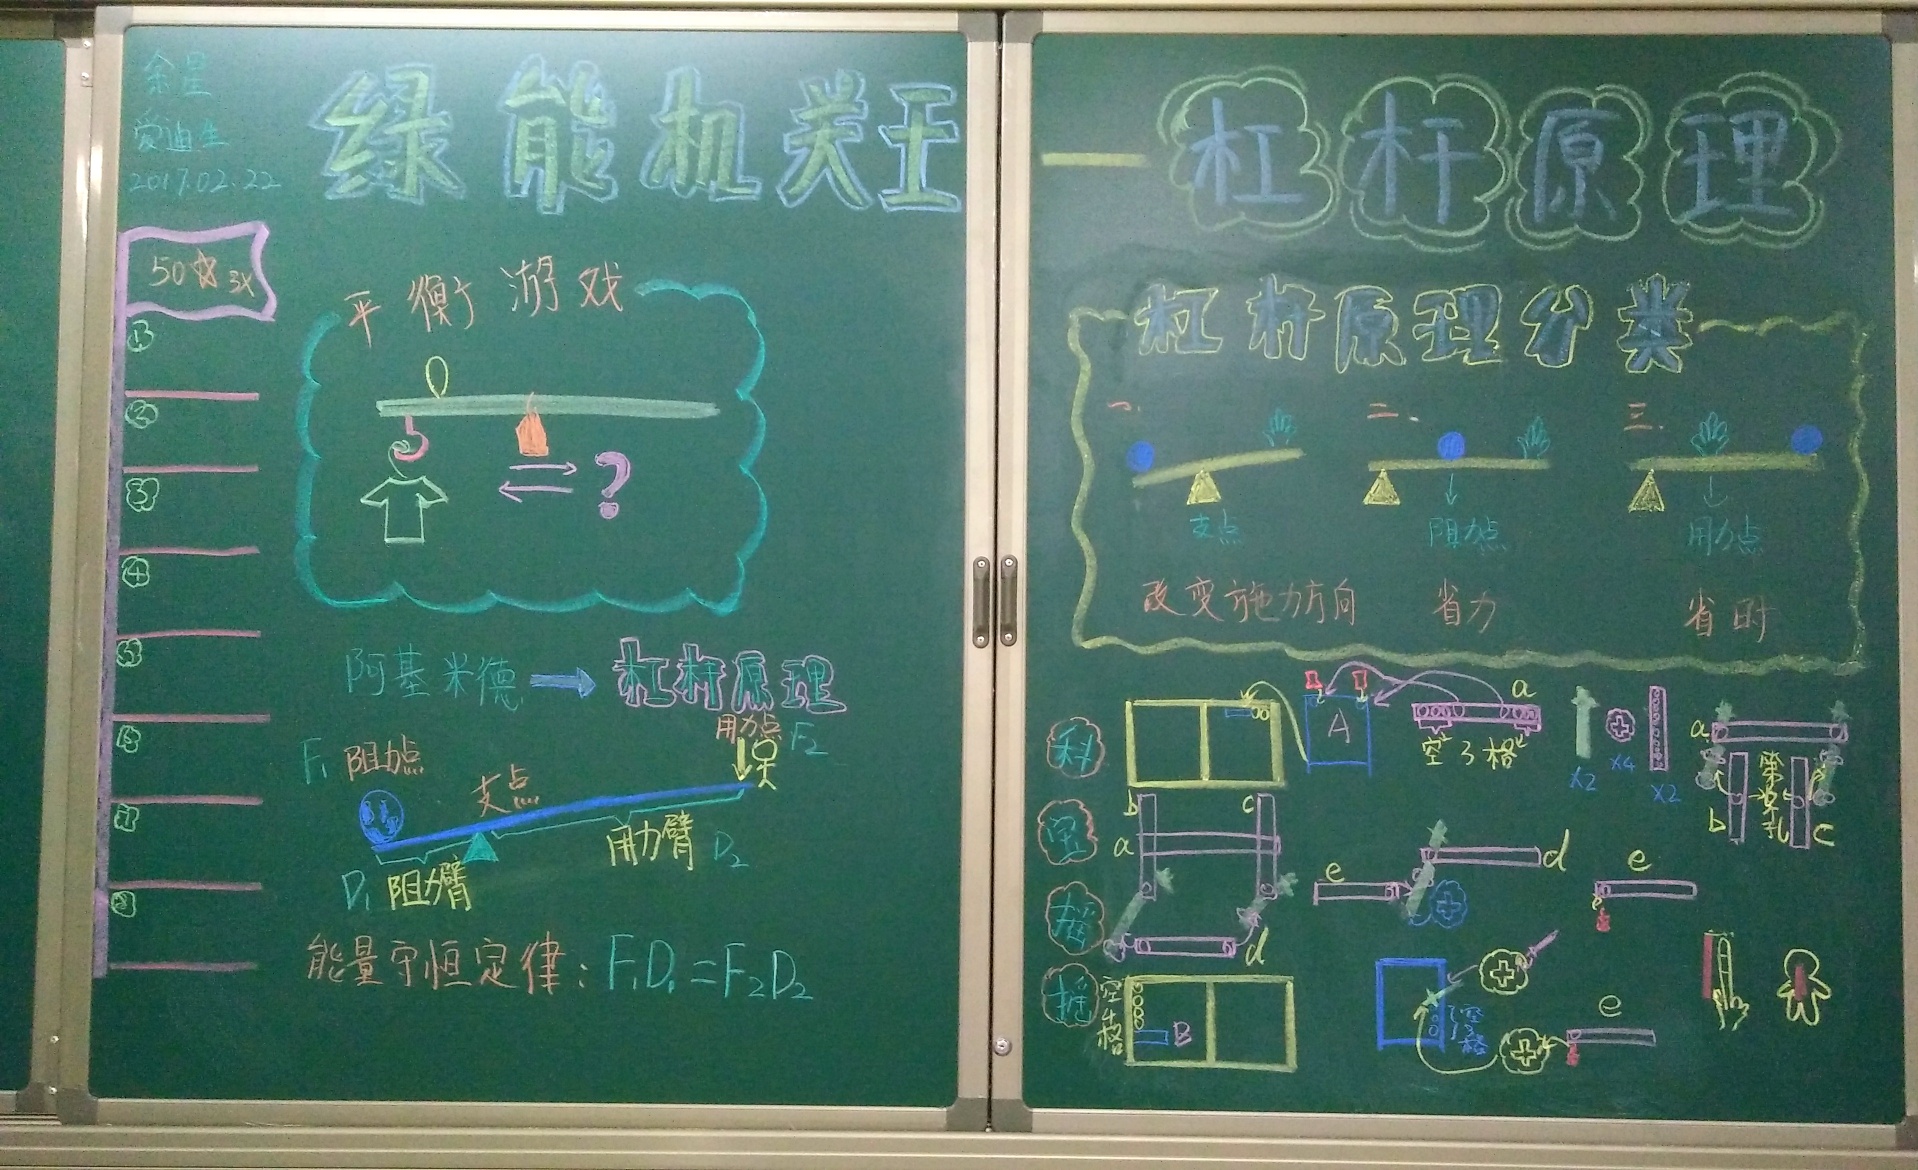 金星
爱迪生
2017.02.22
绿能机关王
50 3x
①
②
③
④
⑤
⑥
⑦
⑧
平衡游戏
?
阿基米德 → 杠杆原理
用力点 F2
F1 阻力点
支点
用力臂 D2
D1 阻力臂
能量守恒定律：F1D1=F2D2
一 杠杆原理
杠杆原理分类
一. 二. 三.
支点 阻力点 用力点
改变施力方向 省力 省时
科
A
a
空3格
x2 x4 x2
a
b 第 孔 c
b c
a
d
e
d
e
摇
摇
空4格
B
空3格
e